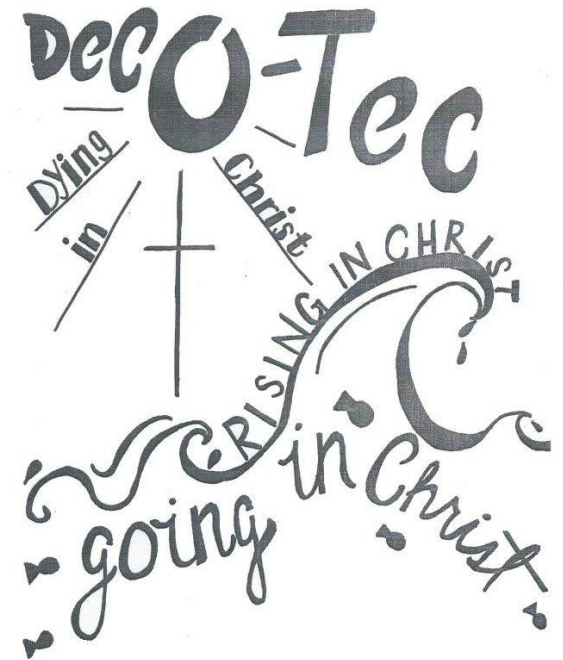 DeCO-Tec
Dying
in
Christ
RISING IN CHRIST
going in Christ